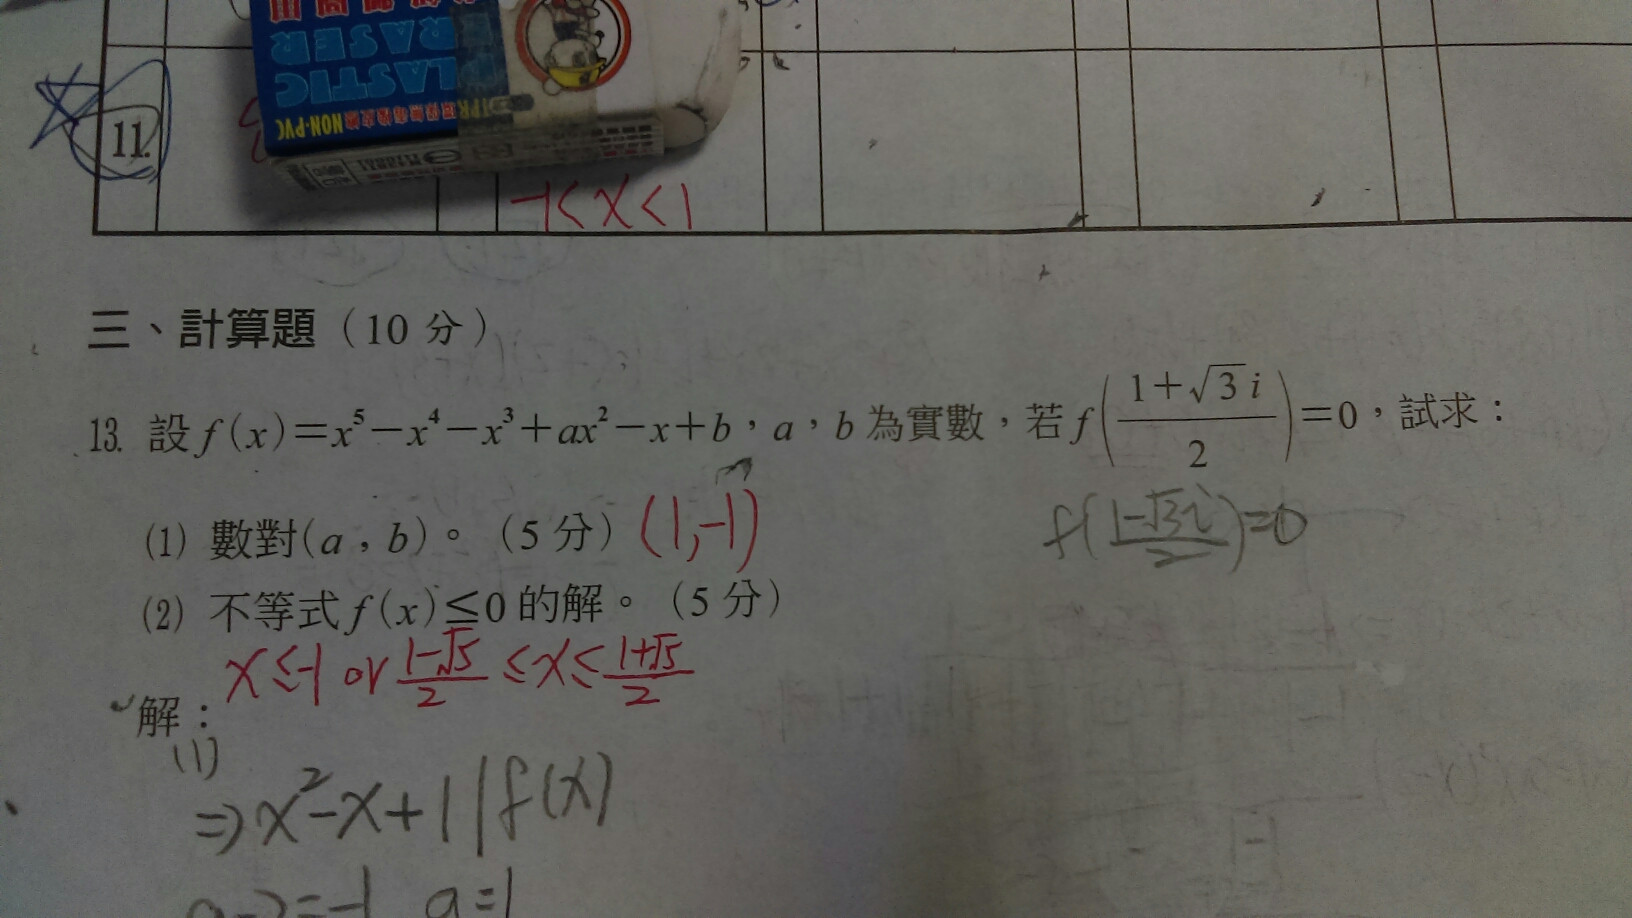 PLASTIC
NON-PVC
11.
-1<x<1
三、計算題（10 分）
13. 設 f(x)=x⁵-x⁴-x³+ax²-x+b，a，b 為實數，若 f((1+√3 i)/2)=0，試求：
f((1-√3i)/2)=0
(1) 數對(a，b)。（5 分） (1,-1)
(2) 不等式 f(x)≦0 的解。（5 分）
x≤-1 or (1-√5)/2 ≤x≤ (1+√5)/2
解：
(1)
⇒x²-x+1|f(x)
a-2=-1 a=1